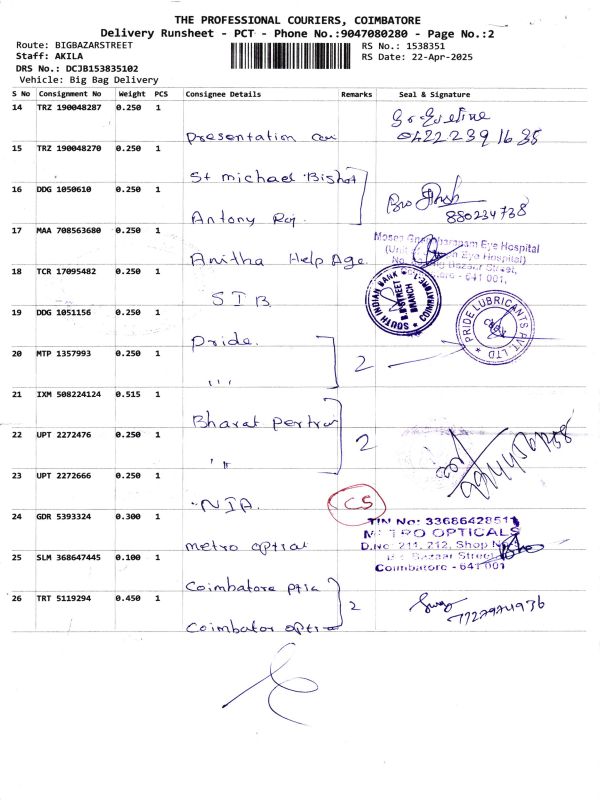 THE PROFESSIONAL COURIERS, COIMBATORE
Delivery Runsheet - PCT - Phone No.:9047080280 - Page No.:2
Route: BIGBAZARSTREET
Staff: AKILA
DRS No.: DCJB153835102
Vehicle: Big Bag Delivery
RS No.: 1538351
RS Date: 22-Apr-2025
S No Consignment No Weight PCS Consignee Details Remarks Seal & Signature
14 TRZ 190048287 0.250 1
Presentation
0422 239 1635
15 TRZ 190048270 0.250 1
St michael Bishop
16 DDG 1050610 0.250 1
Antony Raj
17 MAA 708563680 0.250 1
Anitha Help Age
Eye Hospital
Eye Hospital)
Bazaar Street,
641 001.
18 TCR 17095482 0.250 1
SIB
SOUTH INDIAN BANK LTD. COIMBATORE
B.B.STREET BRANCH
19 DDG 1051156 0.250 1
Pride.
2
PRIDE LUBRICANTS PVT. LTD
20 MTP 1357993 0.250 1
,,,
21 IXM 508224124 0.515 1
Bharat
2
22 UPT 2272476 0.250 1
,,
23 UPT 2272666 0.250 1
NIA.
CS
24 GDR 5393324 0.300 1
metro optical
TIN No: 33686428511
METRO OPTICALS
D.No: 211, 212, Shop No
Bazaar Street
Coimbatore - 641 001
25 SLM 368647445 0.100 1
Coimbatore
2
26 TRT 5119294 0.450 1
Coimbator